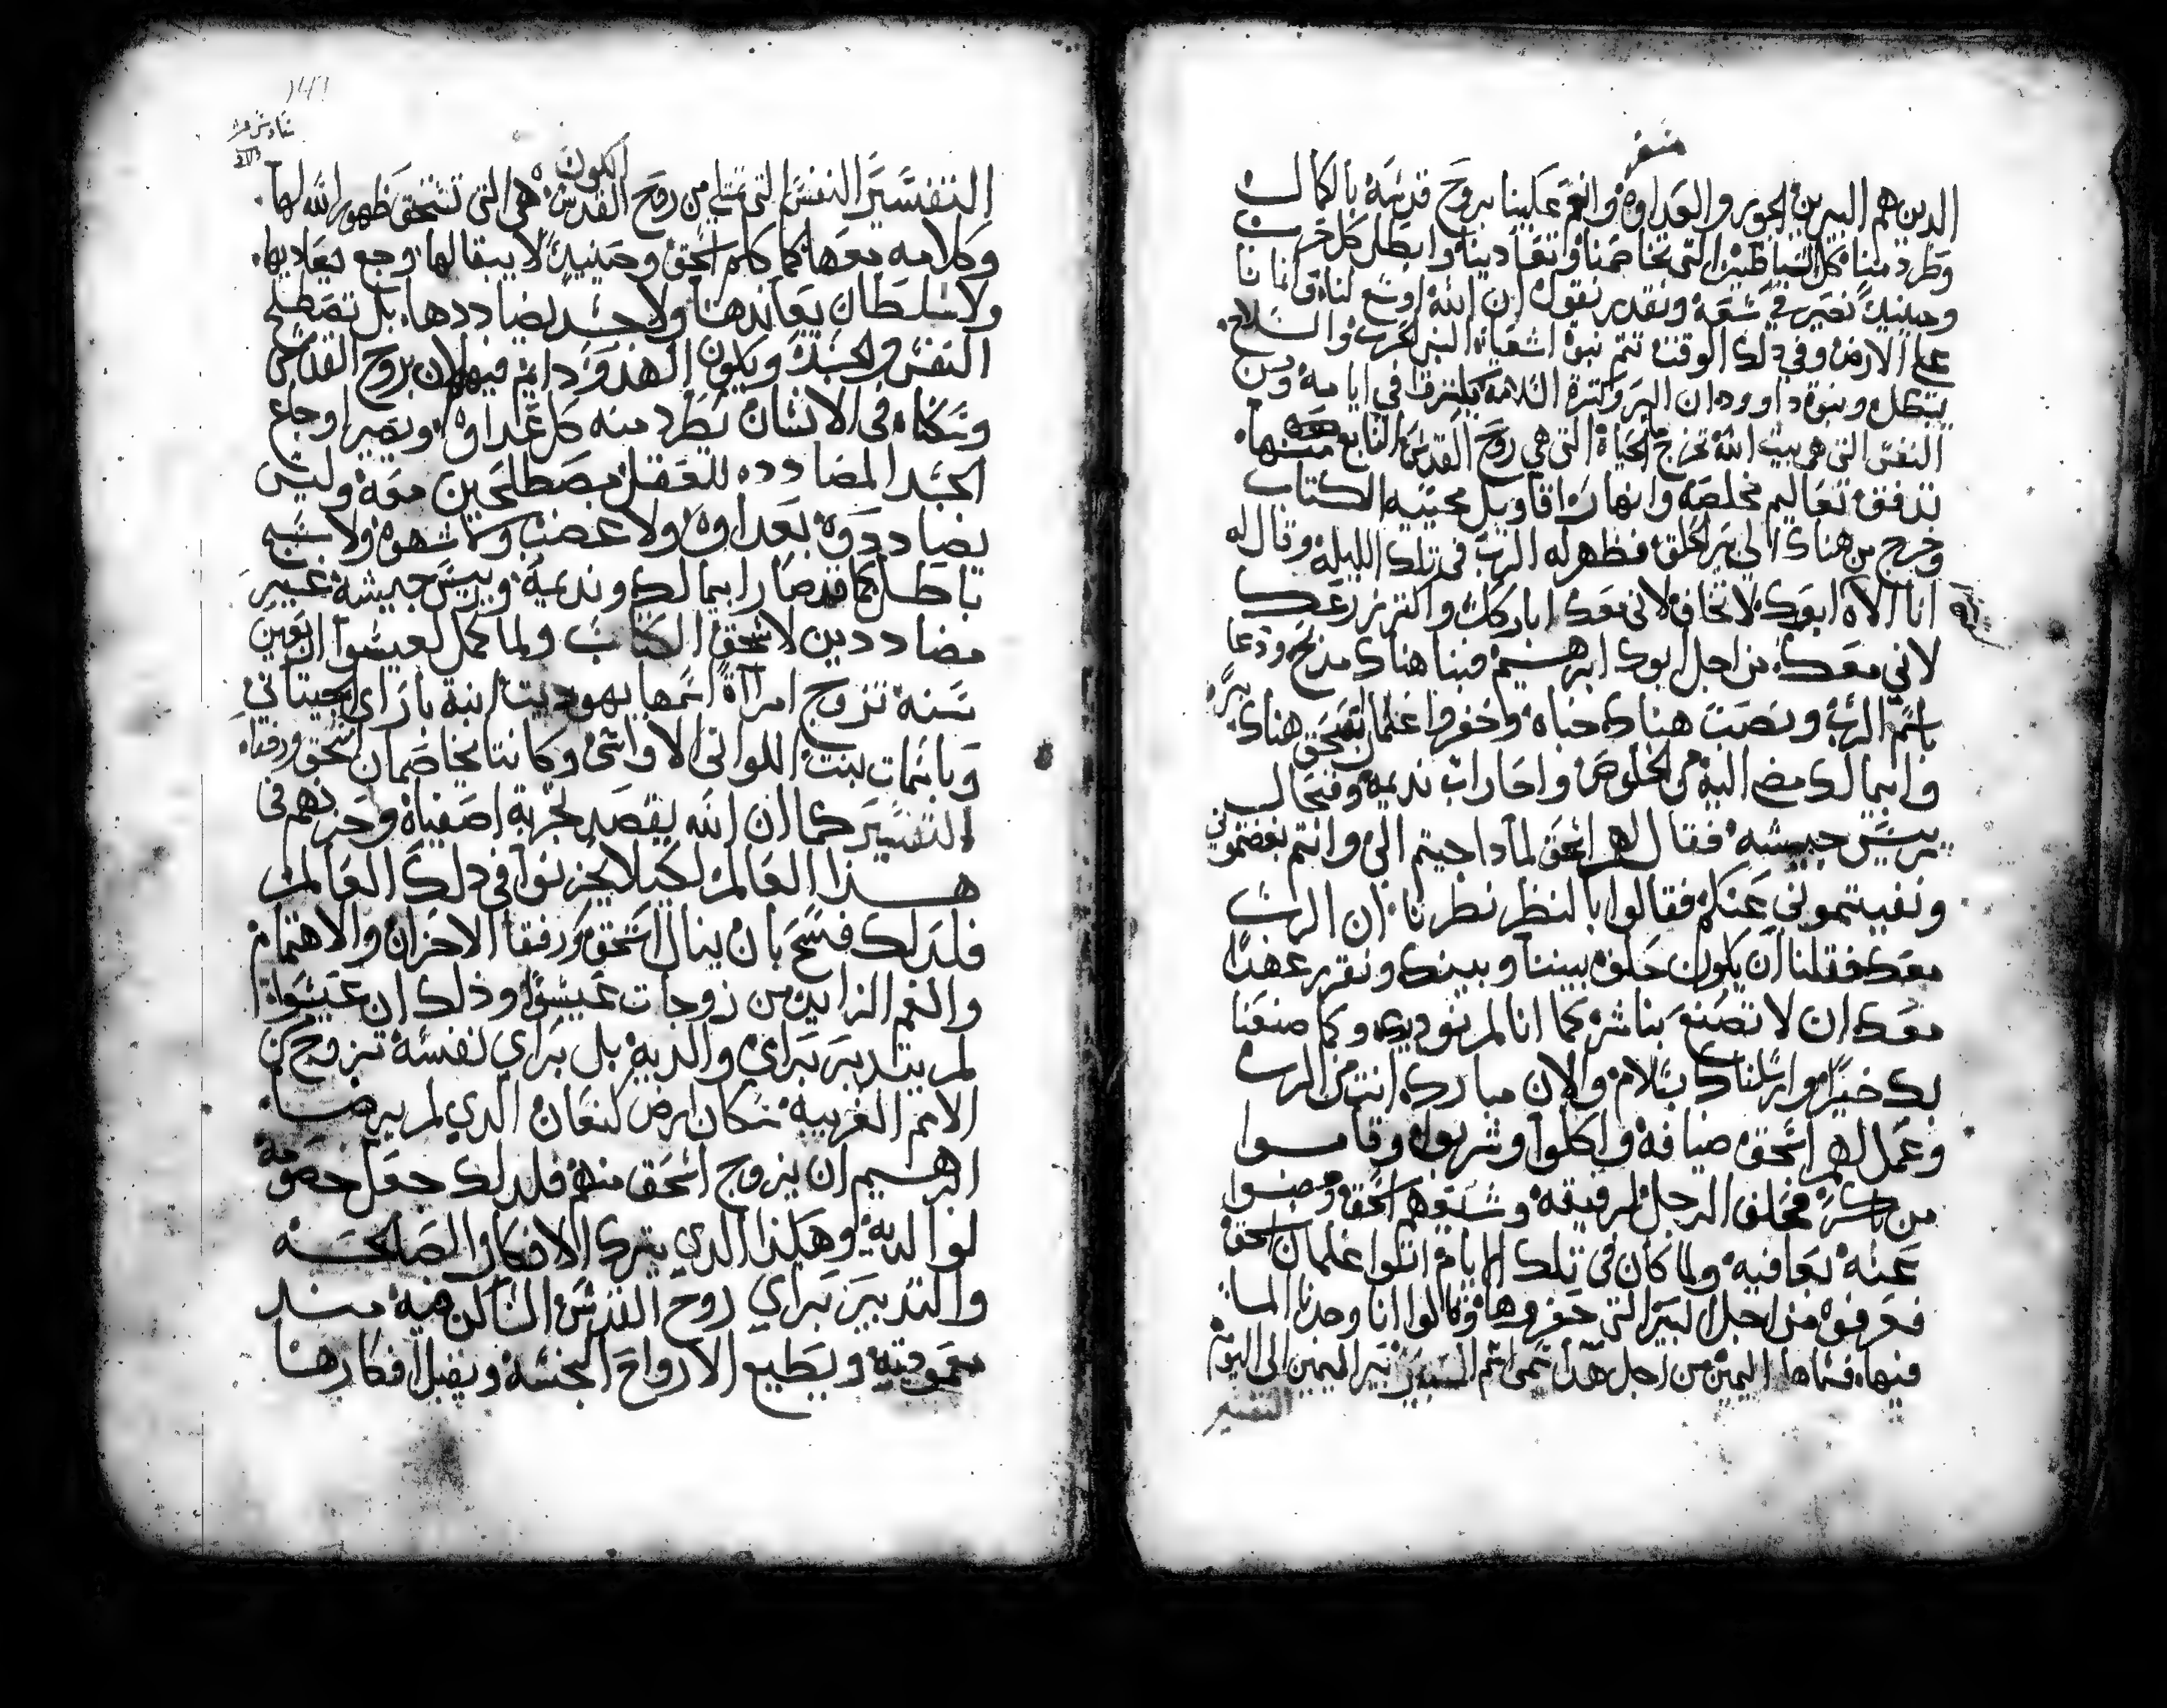 سفر
الدين هم البيرين الجور والعداوة وانعم علينا بروح قدسه بالكمال
وطرد مننا كل الشياطين التي تخاصمنا وتعادينا وابطل كل حرب
وحينيد نصير في سعة ونقدر نقول ان الله اوسع لنا وانمانا
علي الارض وفي دلك الوقت تتم نبوة اشعيا البر والسلام
بيتكل ونبوة داوود ان البر وكترة السلامة في ايامه ومن
النفس التي هي بيت الله تخرج ما الحياة التي هي روح القدس النابع منها
تدفق تعاليم مخلصة وانهار اقاويل محييه الكتاب
وخرج من هناك الي بير الحلف فظهر له الرب في تلك الليلة وقال له
انا الاه ابوك لا تخاف لاني معك اباركك واكتر زرعك
لاني معك من اجل ابوك ابرهيم فبنا هناك مدبح ودعا
باسم الرب ونصب هناك خباه وحفروا غلمان اسحق هناك بير
وابيمالك مضي اليه من الخلوص واحازات نديمه وفيخال
ريس جيشه فقال لهم اسحق لمادا جيتم الي وانتم بغضتموني
ونفيتموني عنكم فقالوا بالنظر نظرنا ان الرب
معك فقلنا ان يكون حلف بيننا وبينك ونقرر عهدا
معك ان لا تصنع بنا شر كما انا لم نوديك وكما صنعنا
بك خيرا وارسلناك بسلام والان مبارك انت من الرب
وعمل لهم اسحق ضيافة واكلوا وشربوا وقاموا
من باكر فحلف الرجل لرفيقه وشيعهم اسحق ومضوا
عنه بعافيه ولما كان في تلك الايام اتلوا غلمان اسحق
فعرفوه من اجل البير التي حفروها وقالوا انا وجدنا الما
فيها فسماها اليمين من اجل هدا سمي اسم المدينه بير اليمين الي اليوم
التفسير
الكون
التفسير النفس التي تمتلي من روح القدس هي التي تستحق ظهور الله لها
وكلامه معها كما كلم اسحق وحينيد لا يبقا لها وجع يعاديها
ولا سلطان يعاندها ولا جسد يضاددها بل تصطلح
النفس والجسد ويكون الهدو دايم فيهم لان بروح القدس
وسكناه في الانسان تطرد منه كل عداوة ويصير اوجاع
الجسد المضادده للعقل مصطلحين معه وليس
يضاددوه بعداوه ولا غضب ولا شهوة ولا سبح
باطل كما قد صار ابيمالك ونديمه وريس جيشه غير
مضاددين لاسحق الكتاب ولما كمل لعيسوا اربعين
سنه تزوج امراة اسمها يهوديت ابنة بارا الحيتاني
وباسمات بنت اللواني الاواني وكانتا يخاصمان اسحق ورفقاه
التفسير كما ان الله يقصد تجربة اصفياه وحزنهم في
هذا العالم لكيلا يحزنوا في دلك العالم
فلدلك فسح بان ينال اسحق ورفقا الاحزان والاهتمام
والغم الزايد من زوجات عيسوا وذلك ان عيسوا
لم يتدبر براي والديه بل براي نفسه تزوج من
الامم الغريبه سكان ارض كنعان الدي لم يرضا
ابرهيم ان يزوج اسحق منهم فلدلك جعل خصومه
لوالديه وهكذا الدي يترك الافكار الصالحه
والتدبير براي روح القدس الساكن فيه مند
معموديته ويطيع الارواح النجسه ويقبل افكارها